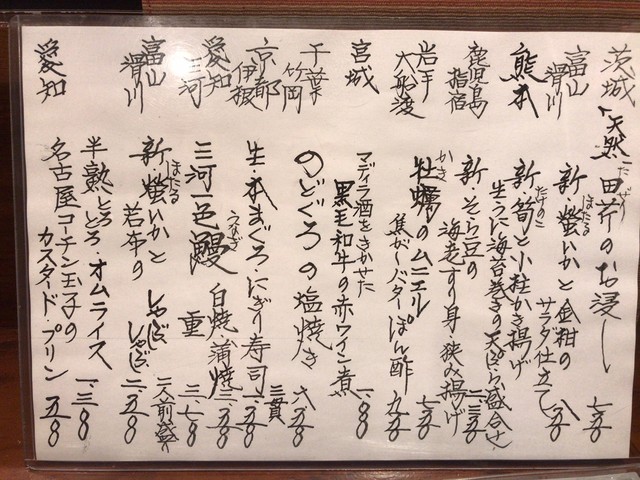 茨城
天然・田芹のお浸し 七五〇
たぜり
富山
滑川
新・螢いかと金柑の
ほたる
サラダ仕立て 八五〇
熊本
新・筍と小柱かき揚げ
たけのこ
生うに海苔巻きの天ぷら盛合せ
鹿児島
指宿
新・そら豆の
海老すり身・狭み揚げ 七五〇
岩手
大船渡
牡蠣のムニエル
かき
焦がしバターぽん酢 九五〇
宮城
マディラ酒をきかせた
黒毛和牛の赤ワイン煮
千葉
竹岡
のどぐろの塩焼き 六、八五〇
京都
伊根
生・本まぐろ・にぎり寿司 三貫 一、三五〇
愛知
三河
三河一色鰻
うなぎ
白焼 蒲焼 三、五〇〇
重 三、七八〇
富山
滑川
新・螢いかと
ほたる
若布の
しゃぶしゃぶ 二人前盛 二、五〇〇
半熟とろとろ・オムライス 一、三八〇
愛知
名古屋コーチン玉子の
カスタード・プリン 五八〇